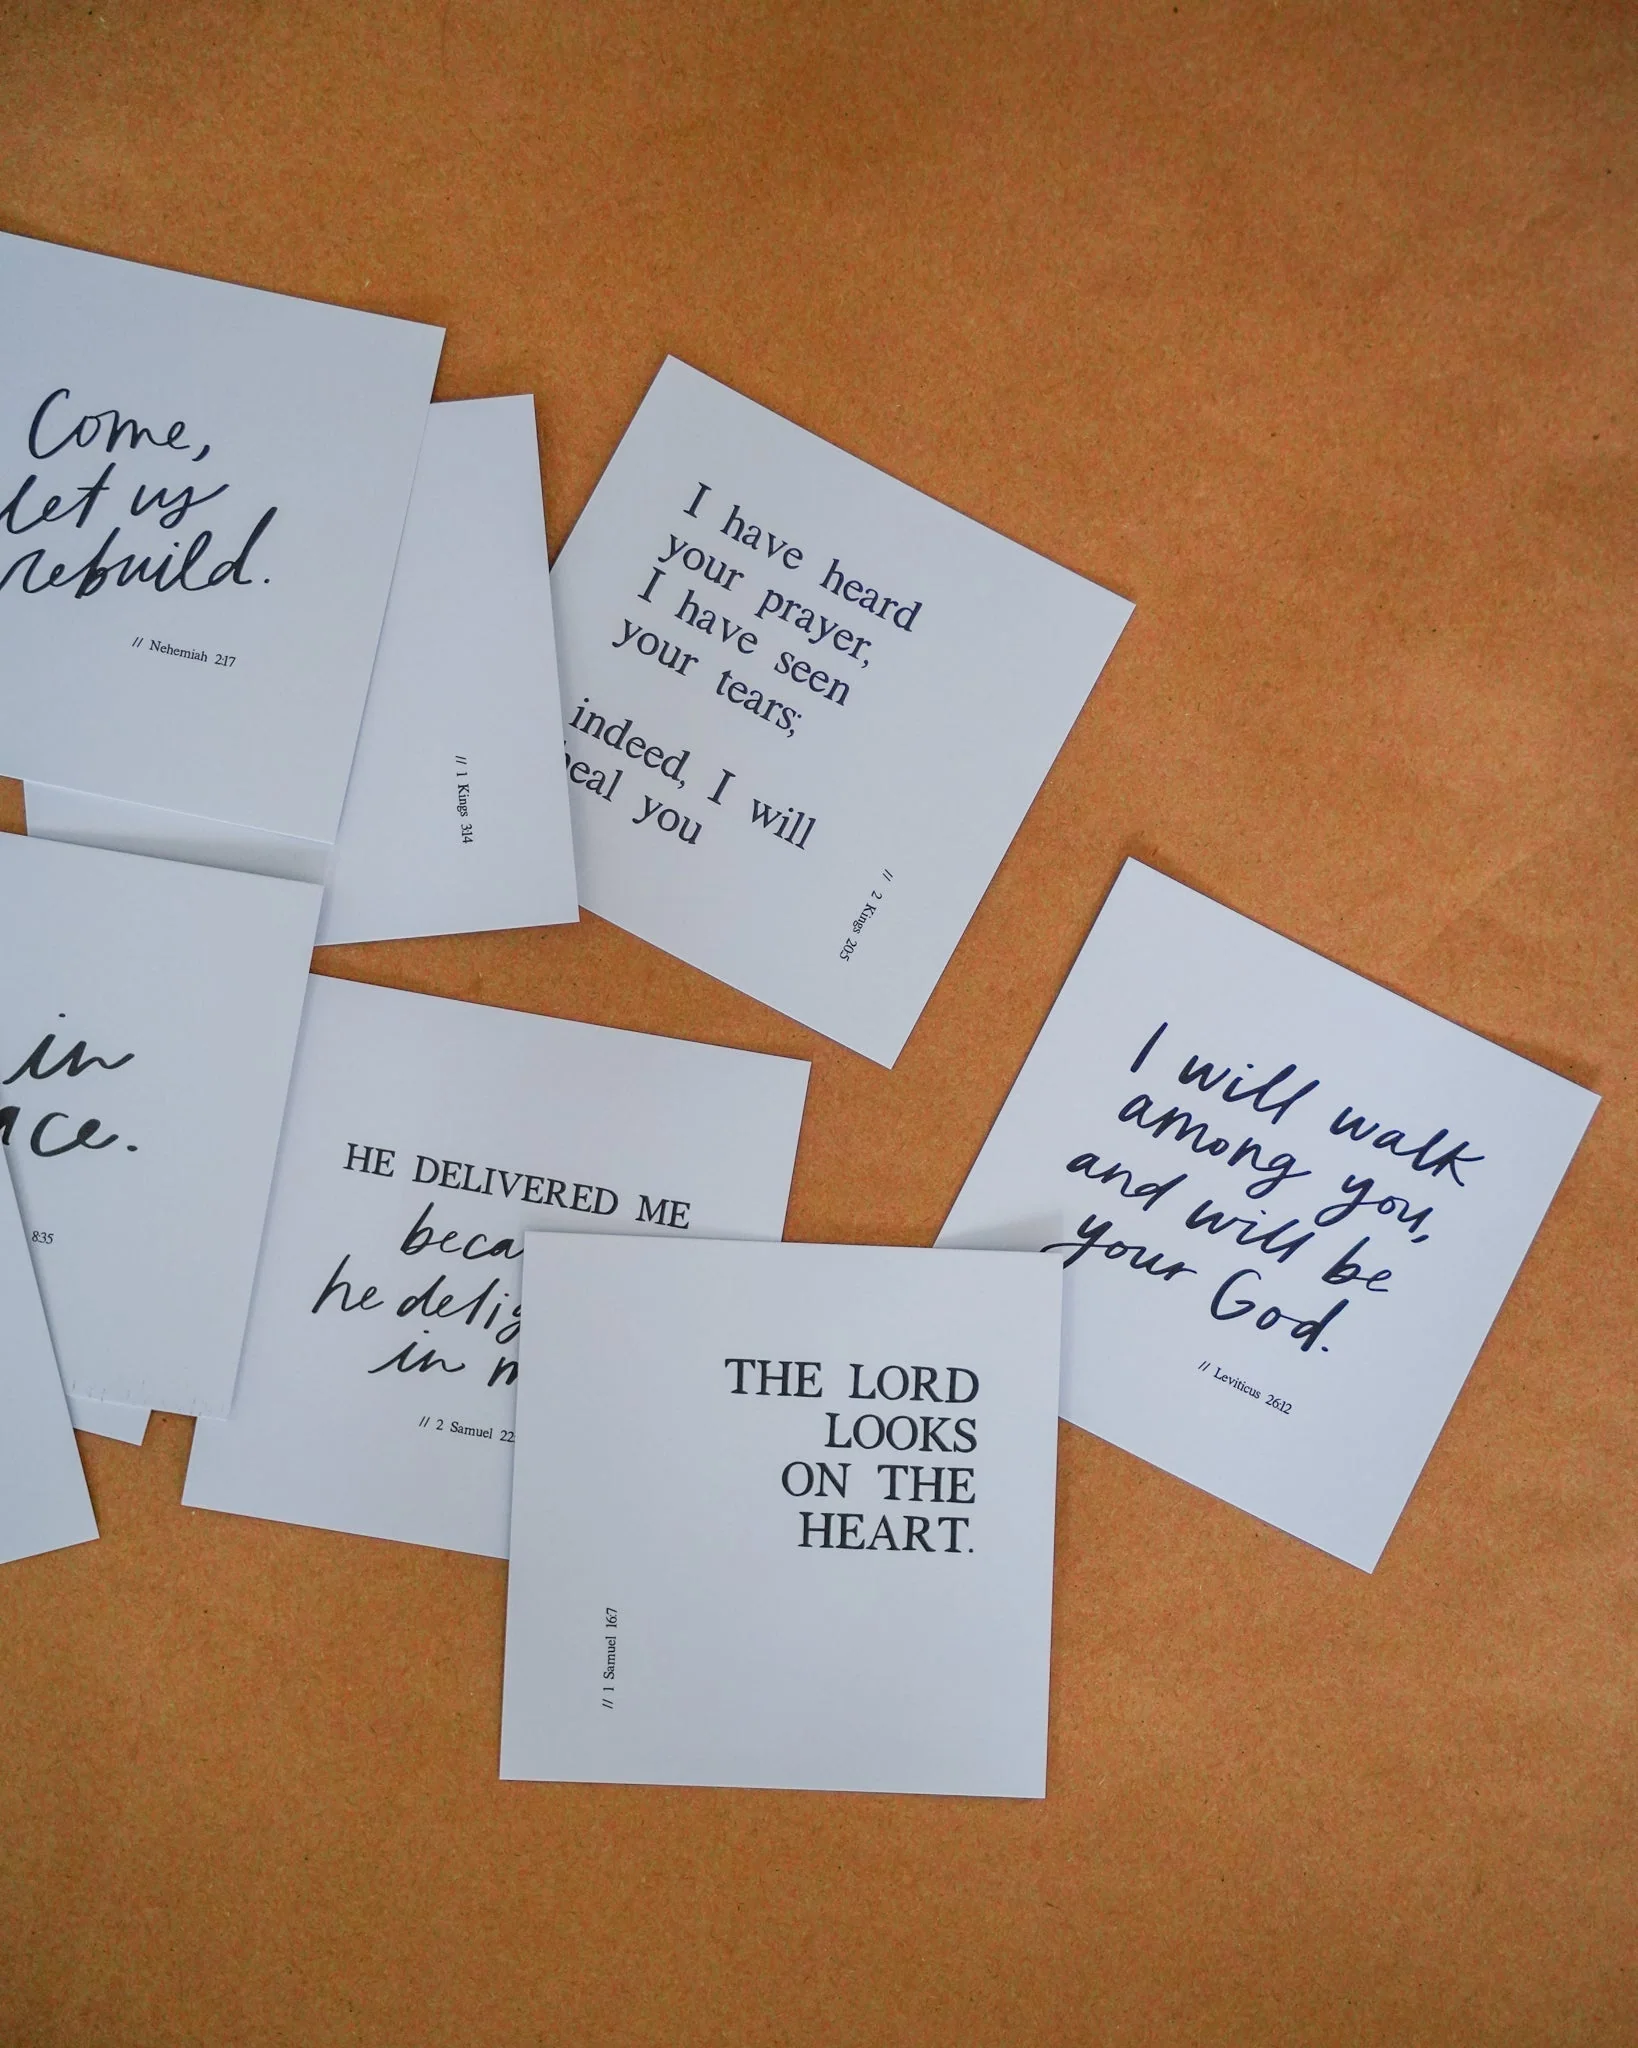 Come,
let us
rebuild.
// Nehemiah 2:17
// 1 Kings 3:14
I have heard
your prayer,
I have seen
your tears;
indeed, I will
you
// 2 Kings 20:5
in
8:35
HE DELIVERED ME
he
in
// 2 Samuel 22
THE LORD
LOOKS
ON THE
HEART.
// 1 Samuel 16:7
I will walk
among you,
and will be
your God.
// Leviticus 26:12